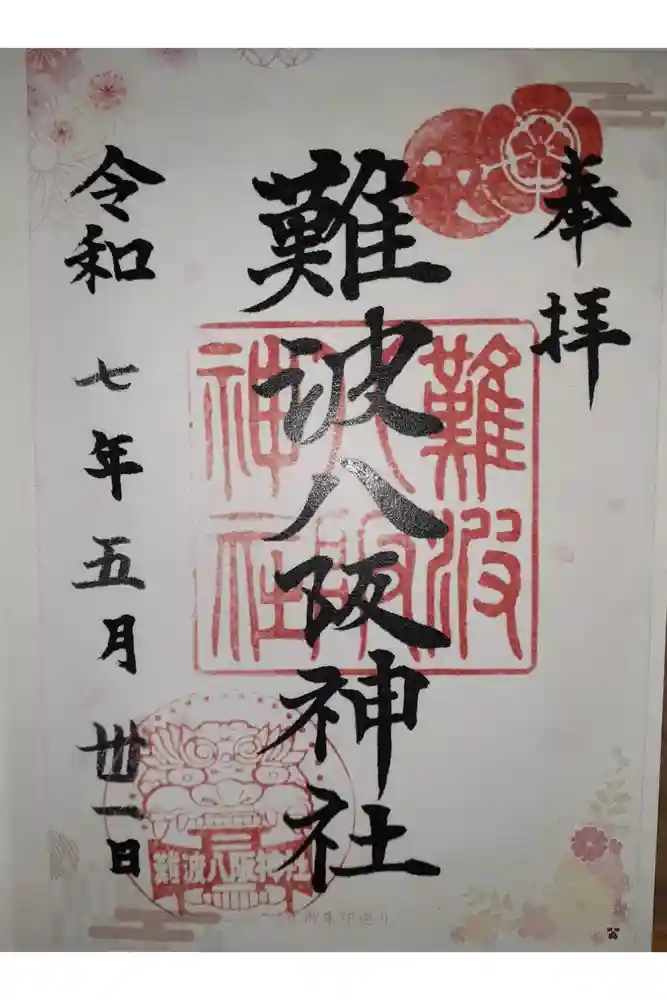 奉拝
難波八阪神社
令和七年五月卅一日
難波八阪神社
難波八阪神社
御朱印巡り